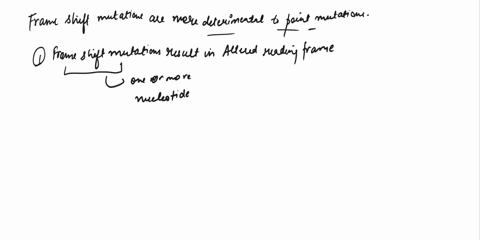 Frame shift mutations are more deterimental to point mutations.
① Frame shift mutations result in Altered reading frame
one or more
nucleotide